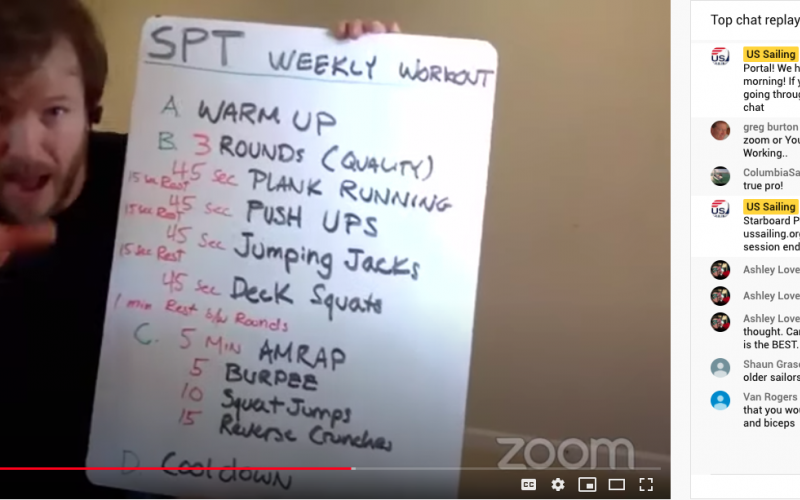 SPT WEEKLY WORKOUT
A. WARM UP
B. 3 ROUNDS (QUALITY)
45 sec PLANK RUNNING
15 sec Rest
45 sec PUSH UPS
15 sec Rest
45 sec Jumping Jacks
15 sec Rest
45 sec Deck Squats
1 min Rest b/w Rounds
C. 5 MIN AMRAP
5 BURPEE
10 Squat Jumps
15 Reverse Crunches
D. Cool down
zoom
CC
Top chat replay
US Sailing
Portal! We h
morning! If y
going throug
chat
greg burton
zoom or You
Working..
ColumbiaSa
true pro!
US Sailing
Starboard P
ussailing.org
session end
Ashley Love
Ashley Love
Ashley Love
thought. Car
is the BEST.
Shaun Grase
older sailors
Van Rogers
that you wou
and biceps